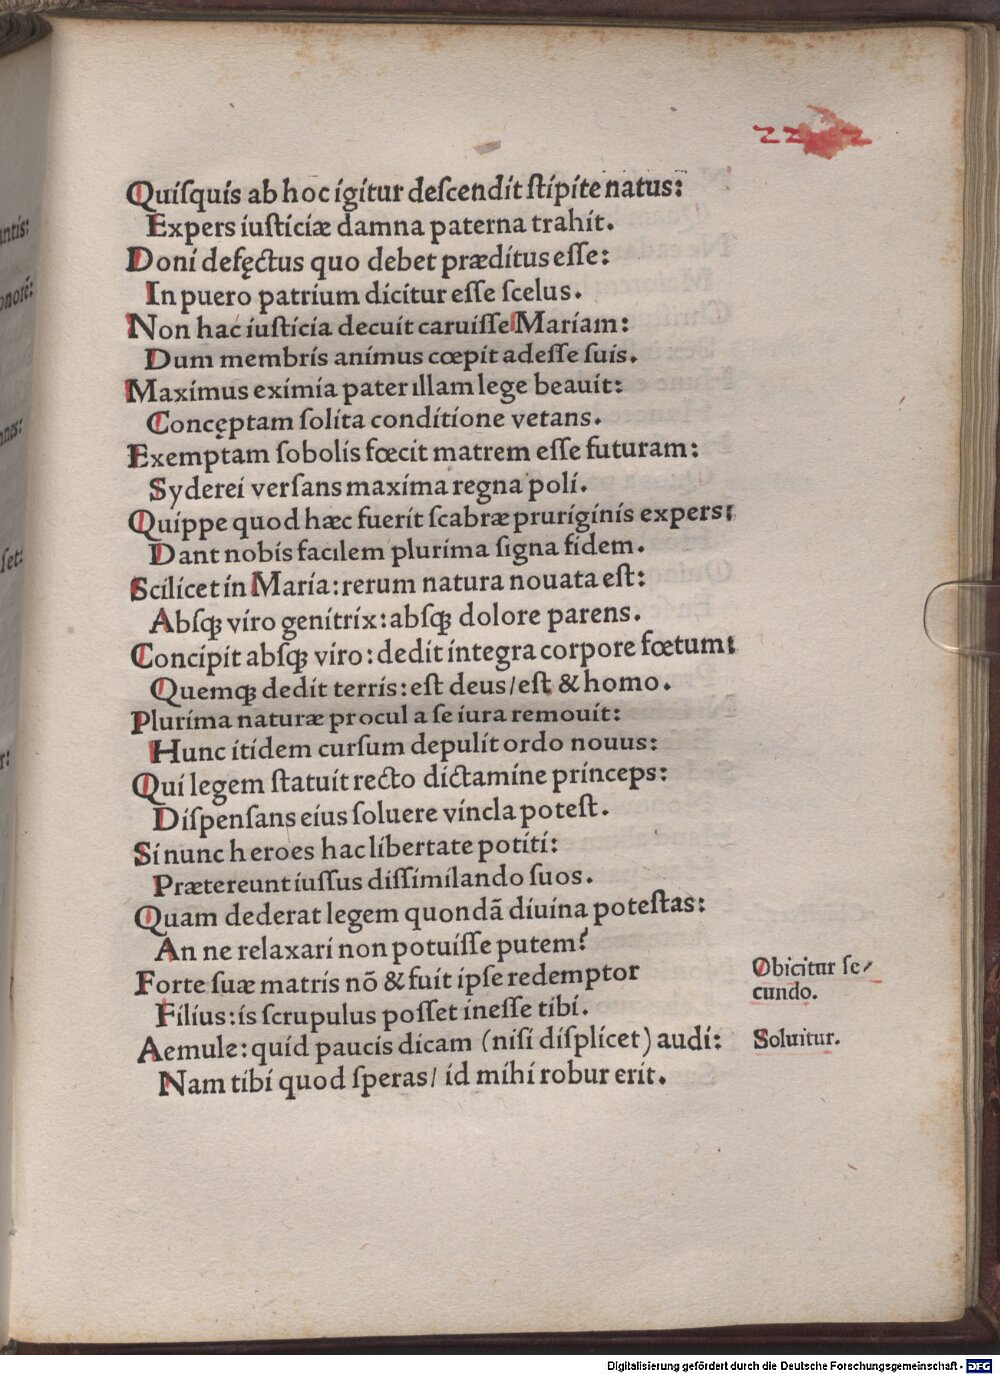 Quiſquis ab hoc igitur deſcendit ſtipite natus:
Expers iuſticiæ damna paterna trahit.
Doni defęctus quo debet præditus eſſe:
In puero patrium dicitur eſſe ſcelus.
Non hac iuſticia decuit caruiſſe Mariam:
Dum membris animus cœpit adeſſe ſuis.
Maximus eximia pater illam lege beauit:
Concęptam ſolita conditione vetans.
Exemptam ſobolis fœcit matrem eſſe futuram:
Syderei verſans maxima regna poli.
Quippe quod hæc fuerit ſcabræ pruriginis expers:
Dant nobis facilem plurima ſigna fidem.
Scilicet in Maria: rerum natura nouata eſt:
Abſqꝫ viro genitrix: abſqꝫ dolore parens.
Concipit abſqꝫ viro: dedit integra corpore fœtum:
Quemqꝫ dedit terris: eſt deus/ eſt & homo.
Plurima naturæ procul a ſe iura remouit:
Hunc itidem curſum depulit ordo nouus:
Qui legem ſtatuit recto dictamine princeps:
Diſpenſans eius ſoluere vincla poteſt.
Si nunc heroes hac libertate potiti:
Prætereunt iuſſus diſſimilando ſuos.
Quam dederat legem quondā diuina poteſtas:
An ne relaxari non potuiſſe putem?
Forte ſuæ matris nō & fuit ipſe redemptor
Filius: is ſcrupulus poſſet ineſſe tibi.
Aemule: quid paucis dicam (niſi diſplicet) audi:
Nam tibi quod ſperas/ id mihi robur erit.
Obicitur ſe/
cundo.
Soluitur.
antis:
onorē:
nnes:
ſet:
r:
Digitalisierung gefördert durch die Deutsche Forschungsgemeinschaft - DFG